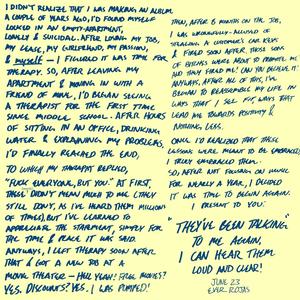 I DIDN'T REALIZE THAT I WAS MAKING AN ALBUM
A COUPLE OF YEARS AGO, I'D FOUND MYSELF
LOCKED IN AN EMPTY APARTMENT,
LONELY & SUICIDAL. AFTER LOSING MY JOB,
MY LEASE, MY GIRLFRIEND, MY PASSION,
& MYSELF — I FIGURED IT WAS TIME FOR
THERAPY. SO, AFTER LEAVING MY
APARTMENT & MOVING IN WITH A
FRIEND OF MINE, I'D BEGAN SEEING
A THERAPIST FOR THE FIRST TIME
SINCE MIDDLE SCHOOL. AFTER HOURS
OF SITTING IN AN OFFICE, DRINKING
WATER & EXPLAINING MY PROBLEMS,
I'D FINALLY REACHED THE END,
TO WHICH MY THERAPIST REPLIED,
"FUCK EVERYONE, BUT YOU". AT FIRST,
THESE DIDN'T MEAN MUCH TO ME (THEY
STILL DON'T, AS I'VE HEARD THEM MILLIONS
OF TIMES), BUT I'VE LEARNED TO
APPRECIATE THE STATEMENT, SIMPLY FOR
THE TIME & PLACE IT WAS SAID.
ANYWAYS, I LEFT THERAPY SOON AFTER
THAT & GOT A NEW JOB AT A
MOVIE THEATER — HELL YEAH! FREE MOVIES?
YES. DISCOUNTS? YES. I WAS PUMPED!
THEN, AFTER 8 MONTHS ON THE JOB,
I WAS WRONGFULLY ACCUSED OF
STEALING A CUSTOMER'S CAR KEYS
& FIRED SOON AFTER. THOSE SONS
OF BITCHES WERE ABOUT TO PROMOTE ME
AND THEY FIRED ME! CAN YOU BELIEVE IT?
ANYWAYS, AFTER ALL OF THIS, I'VE
BEGAN TO REASSEMBLE MY LIFE IN
WAYS THAT I SEE FIT, WAYS THAT
LEAD ME TOWARDS POSITIVITY &
NOTHING LESS.
ONCE I'D REALIZED THAT THESE
LESSONS WERE MEANT TO BE EMBRACED,
I TRULY EMBRACED THEM.
SO, AFTER NOT FOCUSING ON MUSIC
FOR NEARLY A YEAR, I DECIDED
IT WAS TIME TO BEGIN AGAIN.
I PRESENT TO YOU:
"THEY'VE BEEN TALKING"
TO ME AGAIN,
I CAN HEAR THEM
LOUD AND CLEAR!
JUNE 23
EVER ROJAS